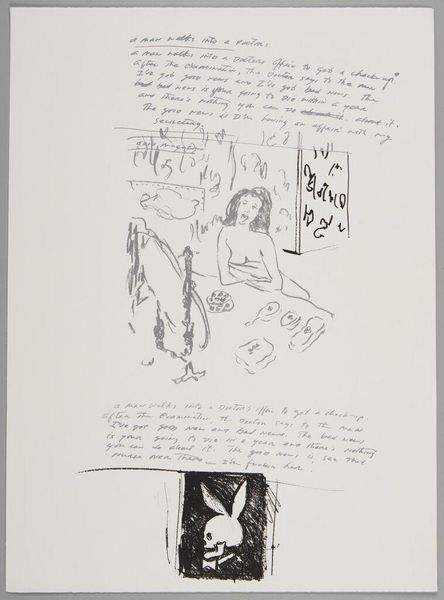 a man walks into a doctors
a man walks into a Doctors office to got a check-up.
after the examination the Doctor says to the man
I've got good news and I've got bad news. The
bad news is your going to die within a year
and there's nothing you can do about it.
The good news is I'm having an affair with my
secretary.
a man walks into a Doctor's office to got a check-up.
after the examination the Doctor says to the man
I've got good news and bad news. The bad news
is your going to die in a year and there's nothing
you can do about it. The good news is, see that
nurse over there — I'm fuckin her!